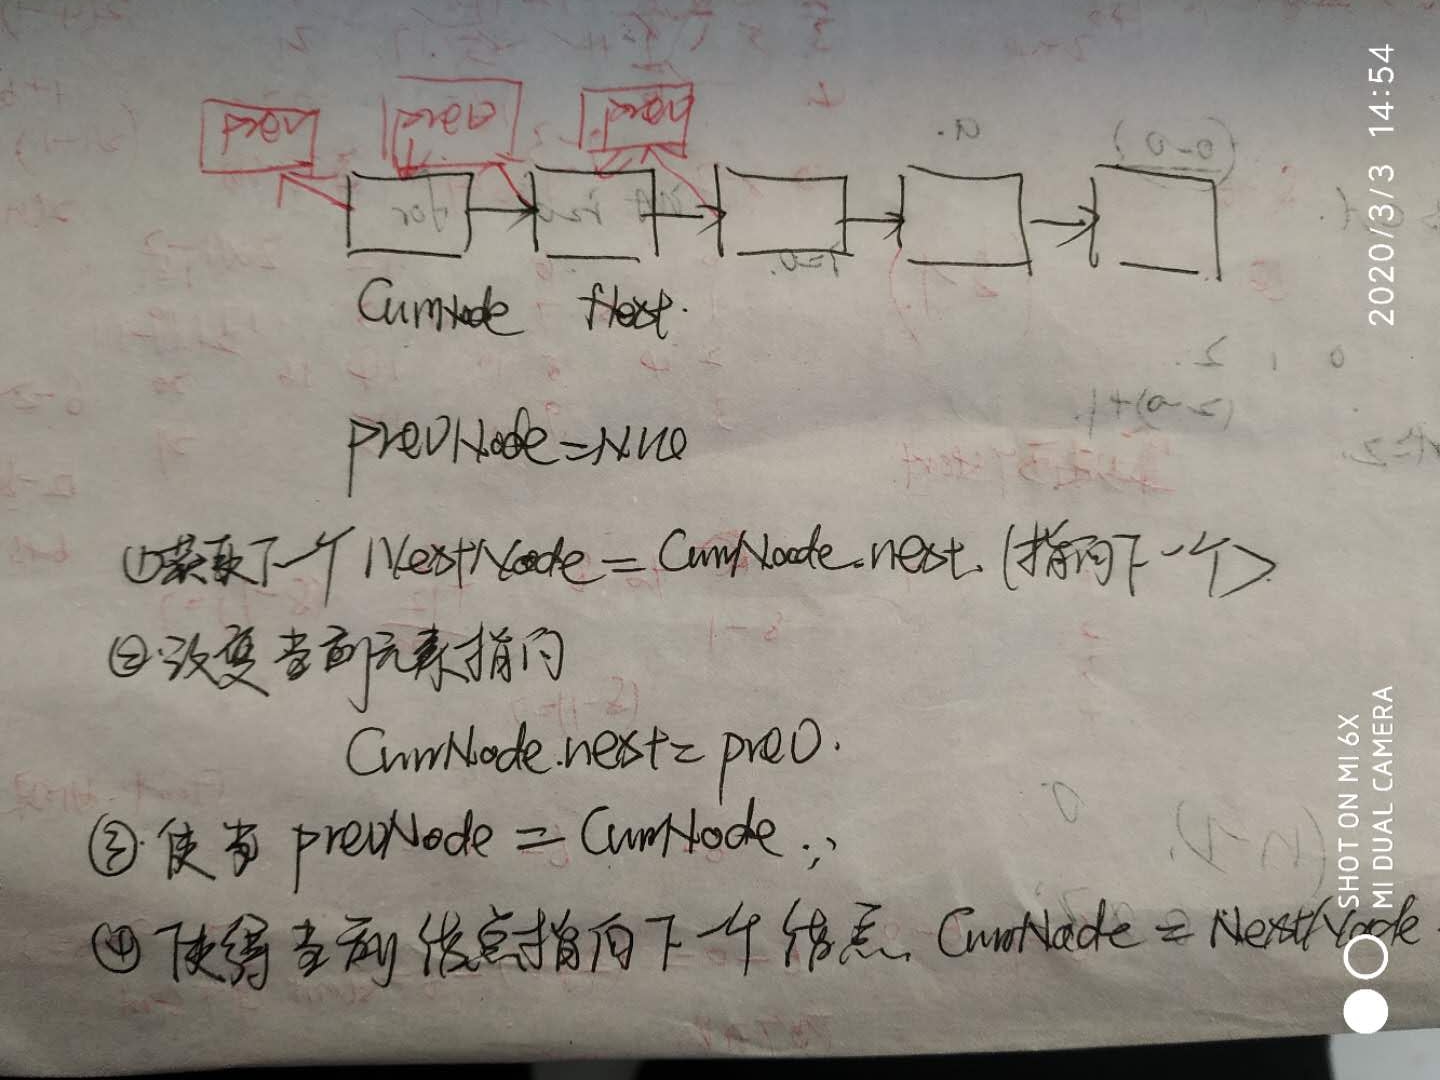 prev prev prev
CurrNode Next.
prevNode=Null
①获取下一个 NextNode = CurrNode.next. (指向下一个)
②改变当前元素指向
CurrNode.next = prev.
③.使当 prevNode = CurrNode.;
④使得当前结点指向下一个结点. CurrNode = NextNode.
SHOT ON MI 6X
MI DUAL CAMERA
2020/3/3 14:54